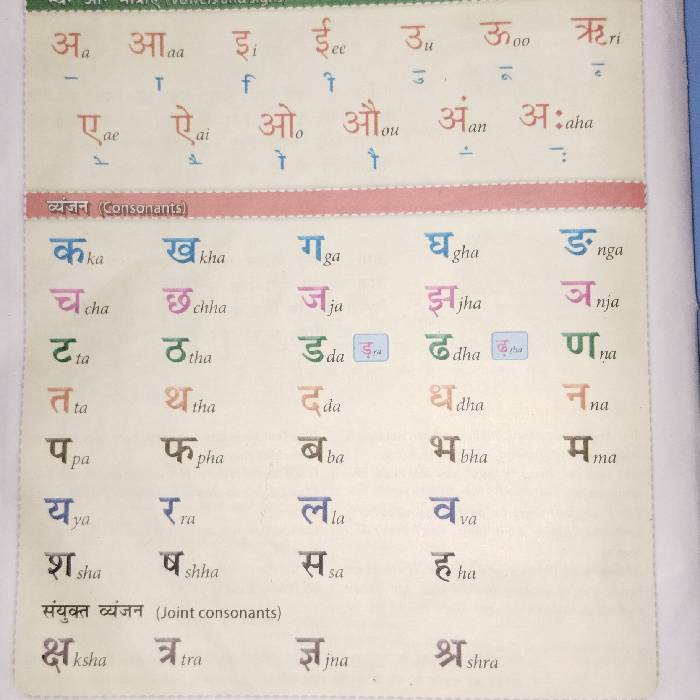 स्वर और मात्राएँ (Vowels and signs)
अ a आ aa इ i ई ee उ u ऊ oo ऋ ri
– ा ि ी ु ू ृ
ए ae ऐ ai ओ o औ ou अं an अः aha
े ै ो ौ ं ः
व्यंजन (Consonants)
क ka ख kha ग ga घ gha ङ nga
च cha छ chha ज ja झ jha ञ nja
ट ta ठ tha ड da ड़ ra ढ dha ढ़ rha ण ṇa
त ta थ tha द da ध dha न na
प pa फ pha ब ba भ bha म ma
य ya र ra ल la व va
श sha ष shha स sa ह ha
संयुक्त व्यंजन (Joint consonants)
क्ष ksha त्र tra ज्ञ jna श्र shra